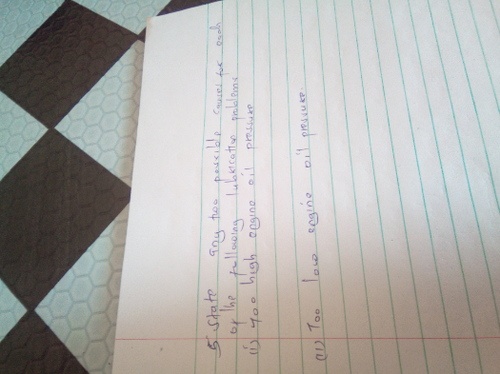 5. State any two possible causes for each
of the following lubrication problems
(i) Too high engine oil pressure
(ii) Too low engine oil pressure.